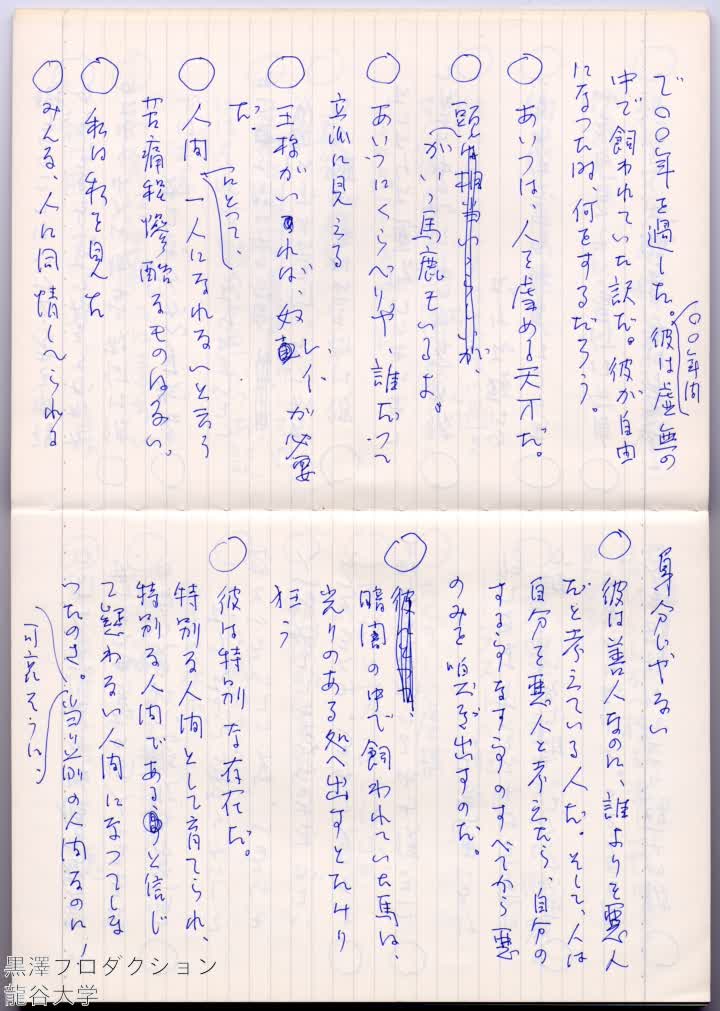 で〇〇年を過した。彼は〇〇年間虚無の
中で飼われていた訳だ。彼が自由
になった時、何をするだろう。
〇 あいつは、人を虐める天才だ。
〇 頭がいゝ馬鹿もいるよ。
〇 あいつにくらべりや、誰だって
立派に見える
〇 王様がいれば、ドレイが必要
だ。
〇 人間にとって、一人になれないと言う
苦痛程惨酷なものはない。
〇 私は私を見た
〇 みんな、人に同情してられる
身分じやない
〇 彼は善人なのに、誰よりも悪人
だと考えている人だ。そして、人は
自分を悪人と考えたら、自分の
する事なす事のすべてから悪
のみを嗅ぎ出すのだ。
〇 暗闇の中で飼われていた馬は、
光りのある処へ出すとたけり
狂う
〇 彼は特別な存在だ。
特別な人間として育てられ、
特別な人間であると信じ
て疑わない人間になってしま
ったのさ。可哀そうに、当り前の人間なのに!
黒澤プロダクション
龍谷大学